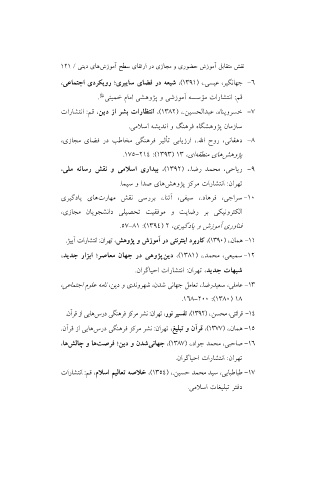 نقش متقابل آموزش حضوری و مجازی در ارتقای سطح آموزش‌های دینی / ۱۲۱
۶- جهانگیر، عیسی، (۱۳۹۱)، شیعه در فضای سایبری: رویکردی اجتماعی،
قم: انتشارات مؤسسه آموزشی و پژوهشی امام خمینی
۷- خسروپناه، عبدالحسین، (۱۳۸۲)، انتظارات بشر از دین، قم: انتشارات
سازمان پژوهشگاه فرهنگ و اندیشه اسلامی.
۸- دهقانی، روح الله، ارزیابی تأثیر فرهنگی مخاطب در فضای مجازی،
پژوهش‌های منطقه‌ای، ۱۳ (۱۳۹۳): ۲۱۴-۱۷۵.
۹- ریاحی، محمد رضا، (۱۳۹۲)، بیداری اسلامی و نقش رسانه ملی،
تهران: انتشارات مرکز پژوهش‌های صدا و سیما.
۱۰- سراجی، فرهاد، سیفی، آتنا، بررسی نقش مهارت‌های یادگیری
الکترونیکی بر رضایت و موفقیت تحصیلی دانشجویان مجازی،
فناوری آموزش و یادگیری، ۲ (۱۳۹۴): ۸۱-۵۷.
۱۱- همان، (۱۳۹۰)، کاربرد اینترنتی در آموزش و پژوهش، تهران: انتشارات آییژ.
۱۲- سمیعی، محمد، (۱۳۸۱)، دین‌پژوهی در جهان معاصر؛ ابزار جدید،
شبهات جدید، تهران: انتشارات احیاگران.
۱۳- عاملی، سعیدرضا، تعامل جهانی شدن، شهروندی و دین، نامه علوم اجتماعی،
۱۸ (۱۳۸۰): ۲۰۰-۱۶۸.
۱۴- قرائتی، محسن، (۱۳۹۲)، تفسیر نور، تهران: نشر مرکز فرهنگی درس‌هایی از قرآن.
۱۵- همان، (۱۳۷۷)، قرآن و تبلیغ، تهران: نشر مرکز فرهنگی درس‌هایی از قرآن.
۱۶- صاحبی، محمد جواد، (۱۳۸۷)، جهانی‌شدن و دین؛ فرصت‌ها و چالش‌ها،
تهران: انتشارات احیاگران.
۱۷- طباطبایی، سید محمد حسین، (۱۳۵۴)، خلاصه تعالیم اسلام، قم: انتشارات
دفتر تبلیغات اسلامی.